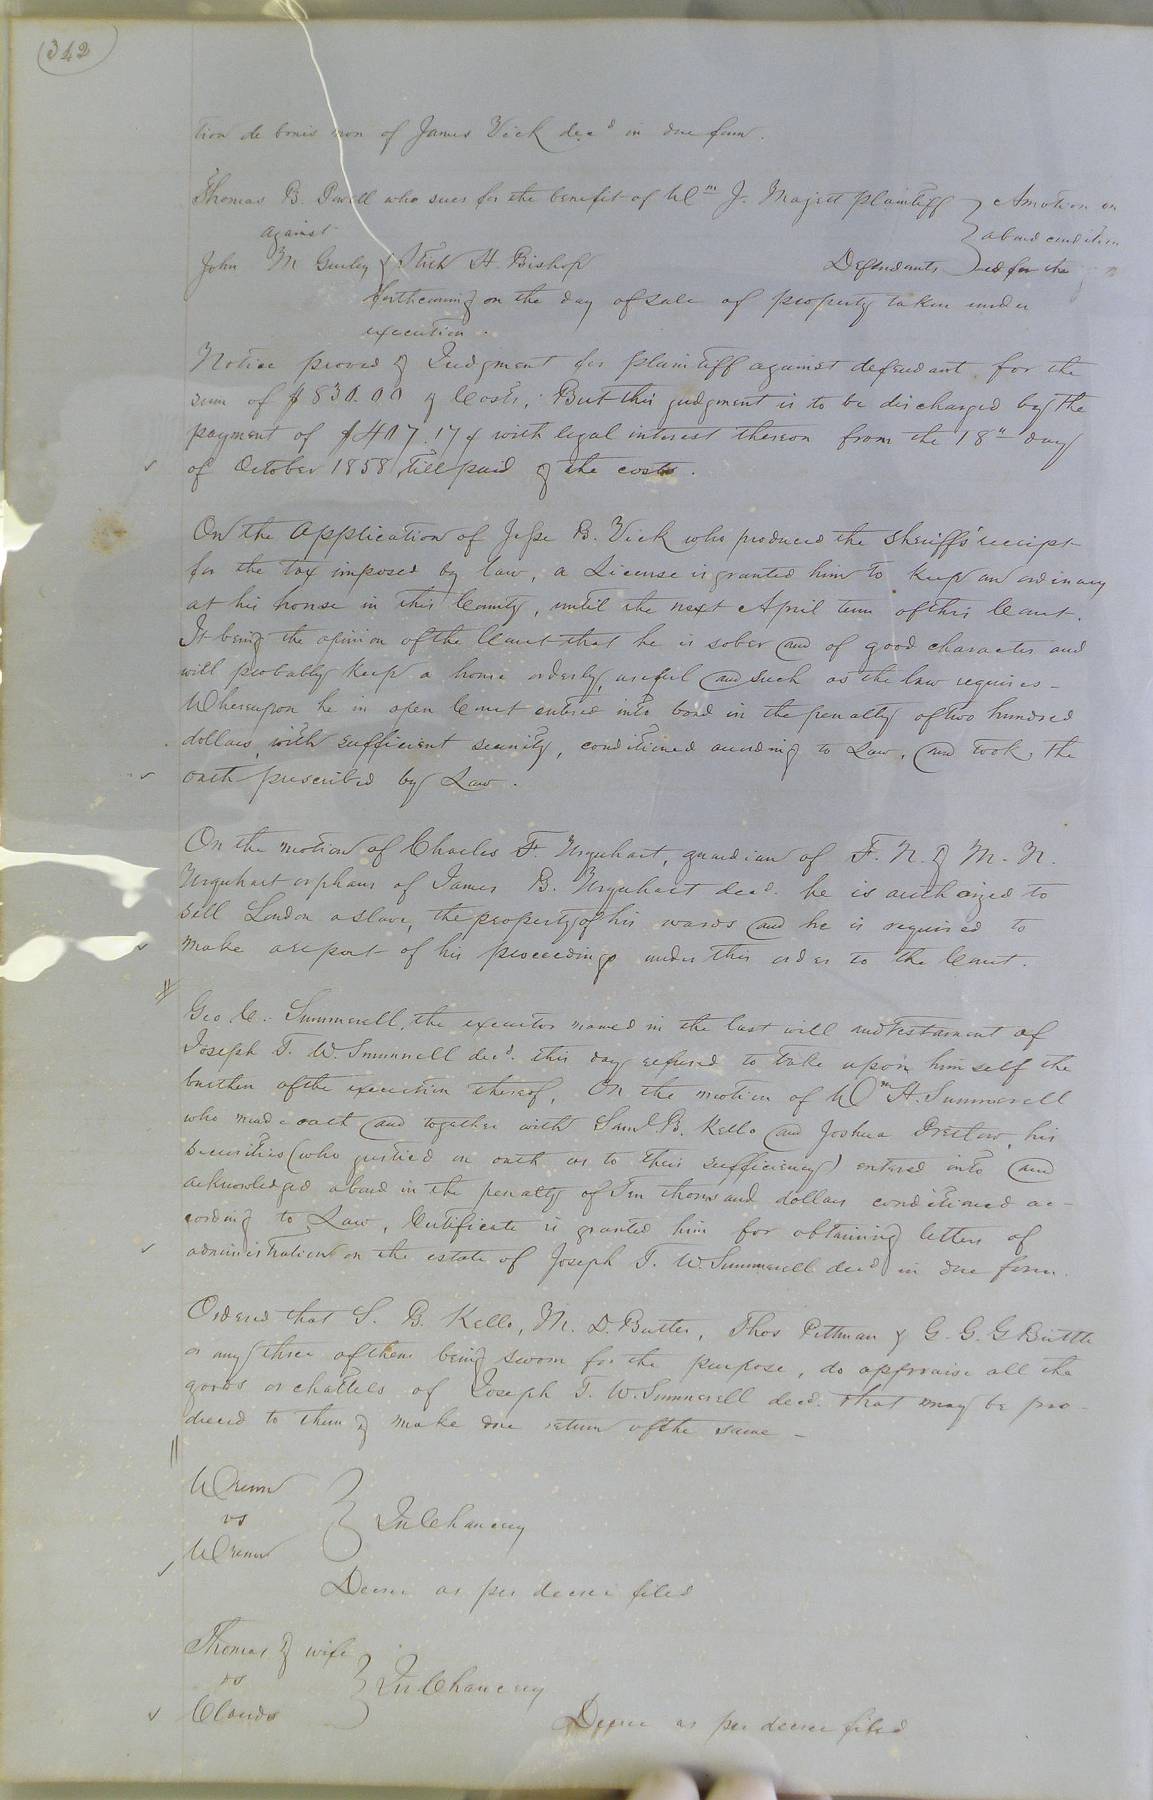 342
tion de bonis non of James Vick decd in due form.
Thomas B. Powell who sues for the benefit of Wm J. Majett plaintiff } A motion on
against } a bond condition
John M Gurley & H. Bishop Defendants } ed for the
forthcoming on the day of sale of property taken under
execution.
Notice proved & Judgment for plaintiff against defendant for the
sum of $830.00 & Costs; But this judgment is to be discharged by the
payment of $417.17 with legal interest thereon from the 18th day
of October 1858 till paid & the costs.
On the application of Jesse B. Vick who produced the sheriff's receipt
for the tax imposed by law, a License is granted him to keep an ordinary
at his house in this County, until the next April term of this Court.
It being the opinion of the Court that he is sober and of good character and
will probably keep a house orderly, useful and such as the law requires -
Whereupon he in open Court entered into bond in the penalty of two hundred
dollars, with sufficient security, conditioned according to Law, and took the
oath prescribed by Law.
On the motion of Charles F. Urquhart, guardian of F. N. & M. N.
Urquhart orphans of James B. Urquhart decd. he is authorized to
sell London a slave, the property of his wards and he is required to
make a report of his proceedings under this order to the Court.
Geo C. Summerell, the executor named in the last will and testament of
Joseph T. W. Summerell decd. this day refused to take upon himself the
burthen of the execution thereof, On the motion of Wm H. Summerell
who made oath and together with Saml. B. Kello and Joshua Pretlow, his
securities (who justied on oath as to their sufficiency) entered into and
acknowledged a bond in the penalty of Ten thousand dollars conditioned ac-
cording to Law, Certificate is granted him for obtaining letters of
administration on the estate of Joseph T. W. Summerell decd in due form.
Ordered that S. B. Kello, M. D. Butts, Thos Pittman & G. G. G
or any three of them being sworn for the purpose, do appraise all the
goods or chattels of Joseph T. W. Summerell decd. that may be pro-
duced to them & make due return of the same -
Wrenn
vs } In Chancery
Wrenn
Decree as per decree filed
Thomas & wife
vs } In Chancery
Claudo
Decree as per decree filed